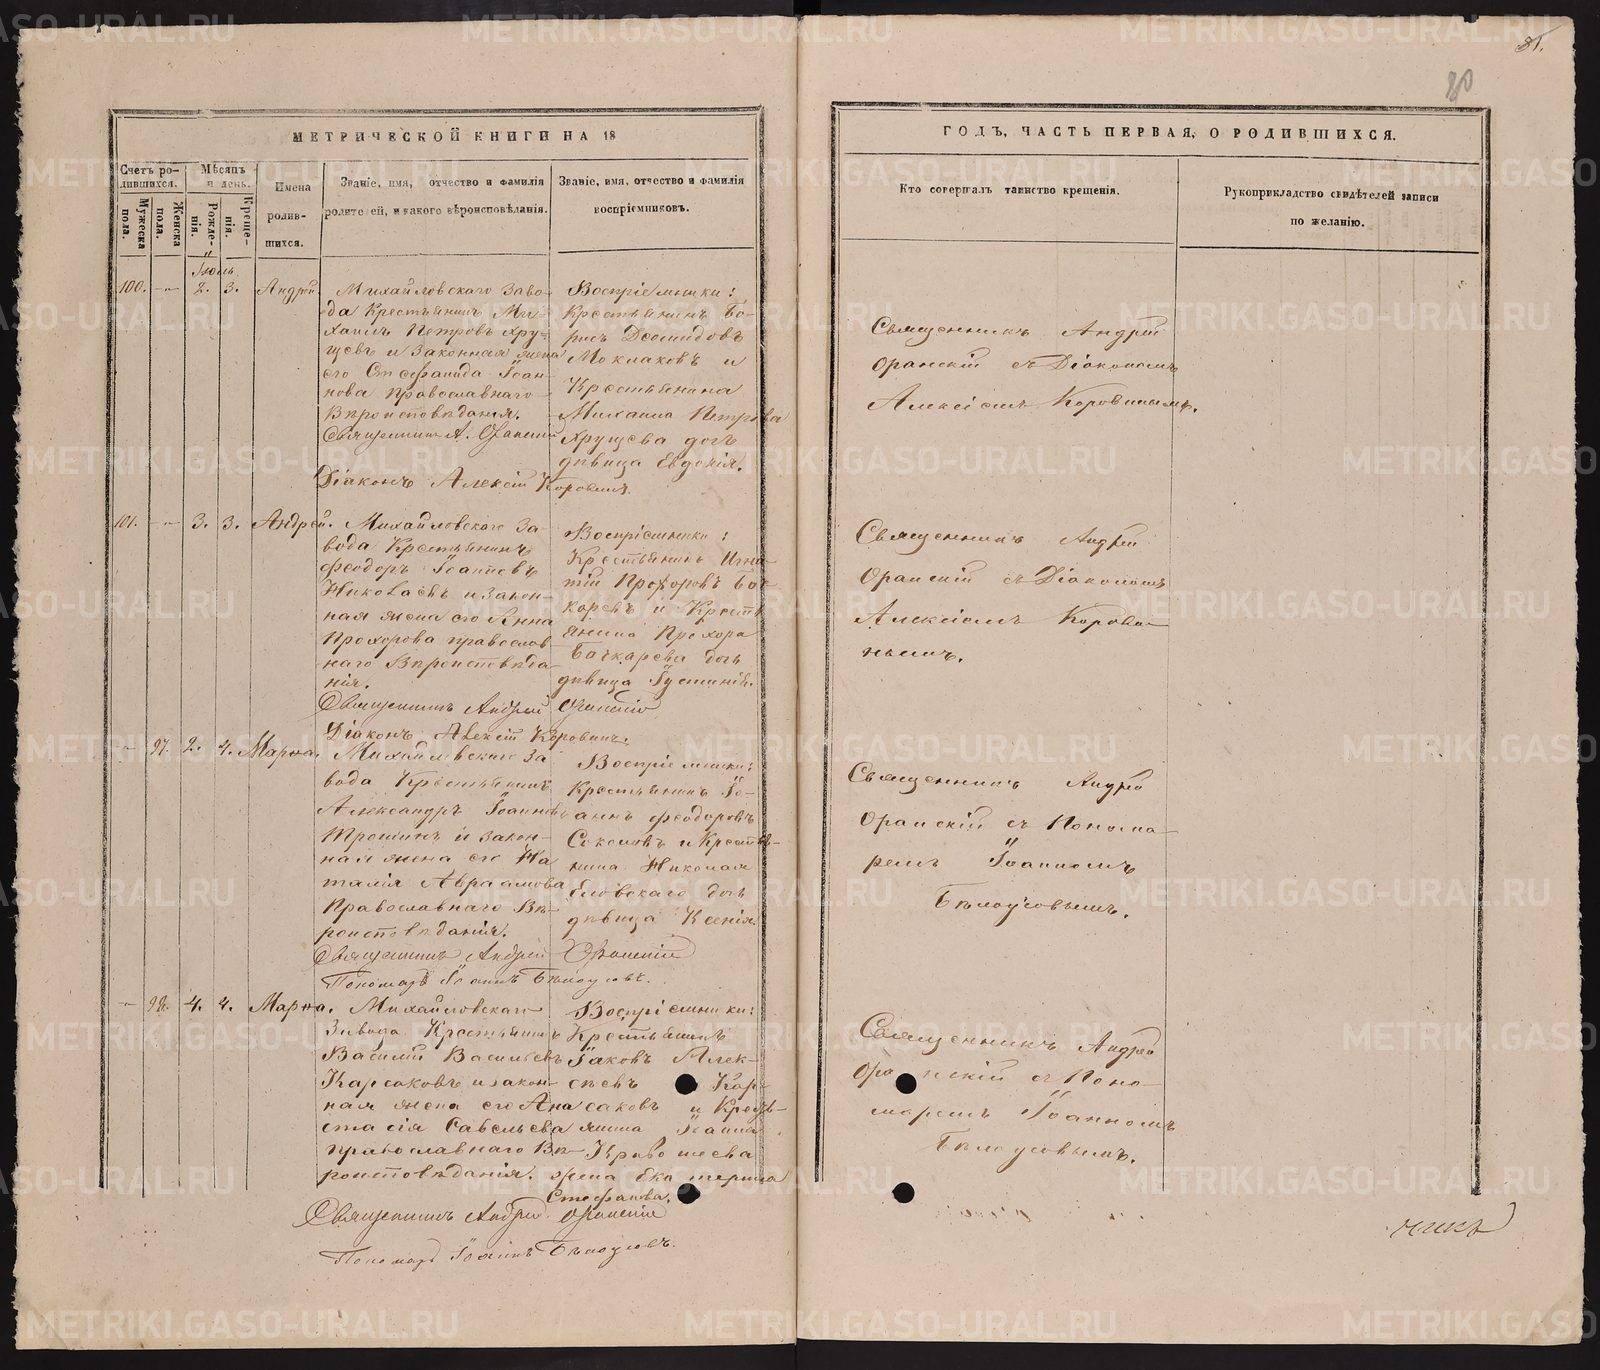 МЕТРИЧЕСКОЙ КНИГИ НА 18
Счетъ ро-
дившихся.
Мужеска
пола.
Женска
пола.
Мѣсяцъ
и день.
Рожде-
нія.
Креще-
нія.
Имена
родив-
шихся.
Званіе, имя, отчество и фамилія
родителей, и какого вѣроисповѣданія.
Званіе, имя, отчество и фамилія
воспріемниковъ.
Іюль
100. 2. 3. Андрей.
Михайловскаго Заво-
да Крестьянинъ Ми-
хаилъ Петровъ Хру-
щевъ и Законная жена
его Стефанида Іоан-
нова Православнаго
Вѣроисповѣданія.
Священникъ А. Оранскій
Діаконъ Алексій Коровинъ.
Воспріемники:
Крестьянинъ Бо-
рисъ Деомидовъ
Моклаковъ и
Крестьянина
Михаила Петрова
Хрущева дочь
дѣвица Евдокія.
101. 3. 3. Андрей.
Михайловскаго За-
вода Крестьянинъ
Феодоръ Іоанновъ
Николаевъ и закон-
ная жена его Анна
Прохорова православ-
наго Вѣроисповѣда-
нія.
Священникъ Андрей Оранскій
Діаконъ Алексій Коровинъ.
Воспріемники:
Крестьянинъ Игна-
тій Прохоровъ Боч-
каревъ и Кресть-
янина Прохора
Бочкарева дочь
дѣвица Іустинія.
97. 2. 4. Марѳа.
Михайловскаго За
вода Крестьянинъ
Александръ Іоанновъ
Трошинъ и закон-
ная жена его На
талія Авраамова
Православнаго Вѣ-
роисповѣданія.
Священникъ Андрей Оранскій
Пономарь Іоаннъ Бѣлоусовъ.
Воспріемники:
Крестьянинъ Іо-
аннъ Феодоровъ
Соколовъ и Крестья-
нина Николая
дочь
дѣвица Ксенія.
98. 4. 4. Марѳа.
Михайловскаго
Завода Крестьянинъ
Василій Васильевъ
Карсаковъ и закон-
ная жена его Ана
стасія Савельева
православнаго Вѣ-
роисповѣданія.
Воспріемники:
Крестьянинъ
Іаковъ Алек-
сѣевъ Кар-
саковъ и Кресть-
янина Іоанна
Кривошеева
жена Екатерина
Стефанова.
Священникъ Андрей Оранскій
Пономарь Іоаннъ Бѣлоусовъ.
81.
80
ГОДЪ, ЧАСТЬ ПЕРВАЯ, О РОДИВШИХСЯ.
Кто совершалъ таинство крещенія.
Рукоприкладство свидѣтелей записи
по желанію.
Священникъ Андрей
Оранскій съ Діакономъ
Алексіемъ Коровинымъ.
Священникъ Андрей
Оранскій съ Діакономъ
Алексіемъ Корови-
нымъ.
Священникъ Андрей
Оранскій съ Понома-
ремъ Іоанномъ
Бѣлоусовымъ.
Священникъ Андрей
Оранскій съ Поно-
маремъ Іоанномъ
Бѣлоусовымъ.
никъ
METRIKI.GASO-URAL.RU